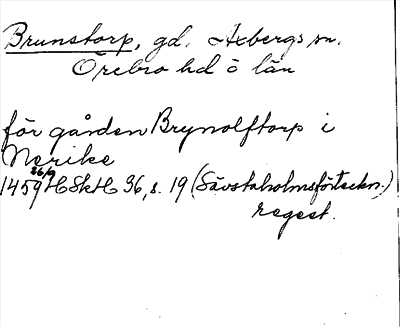 Brunstorp, gd. Axbergs sn.
Örebro hd o län
för gården Brynolftorp i
Nerike
1459 26/9 HSkH 36, s. 19 (Sävstaholmsförteckn.)
regest.